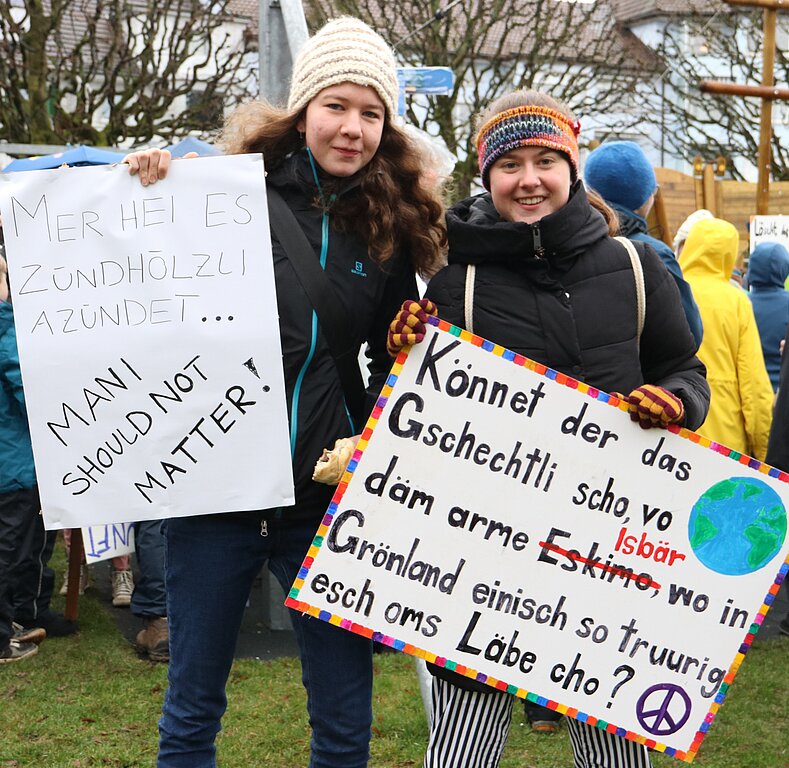 MER HEI ES
ZÜNDHÖLZLI
AZÜNDET...
MANI
SHOULD NOT
MATTER!
Könnet der das
Gschechtli scho, vo
däm arme Eskimo, wo in
Isbär
Grönland einisch so truurig
esch oms Läbe cho?